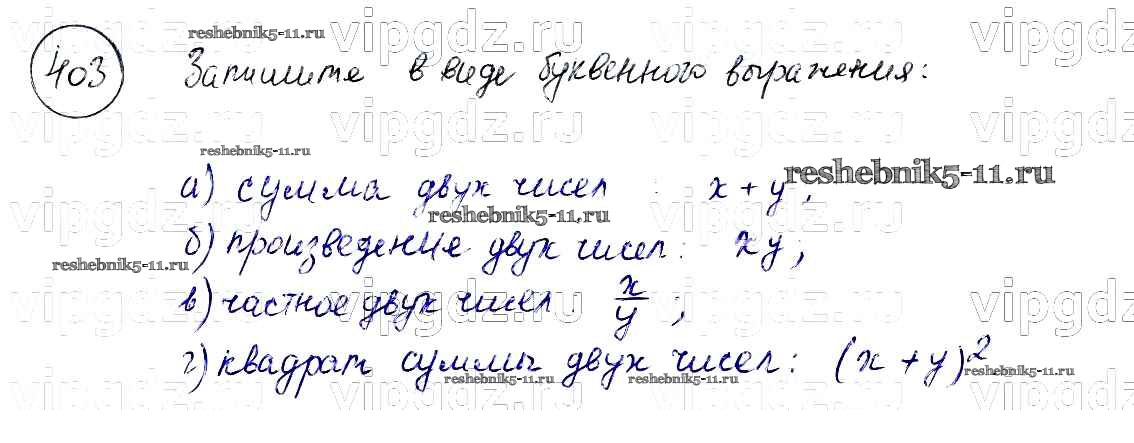 403 Запишите в виде буквенного выражения:
а) сумма двух чисел : x + y;
б) произведение двух чисел: xy;
в) частное двух чисел : x/y ;
г) квадрат суммы двух чисел: (x + y)²
reshebnik5-11.ru
vipgdz.ru